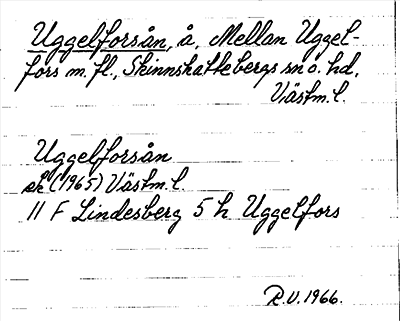 Uggelforsån, å, Mellan Uggel-
fors m. fl., Skinnskattebergs sn o. hd,
Västm. l.
Uggelforsån
ek (1965) Västm. l.
11 F Lindesberg 5 h Uggelfors
R.V. 1966.